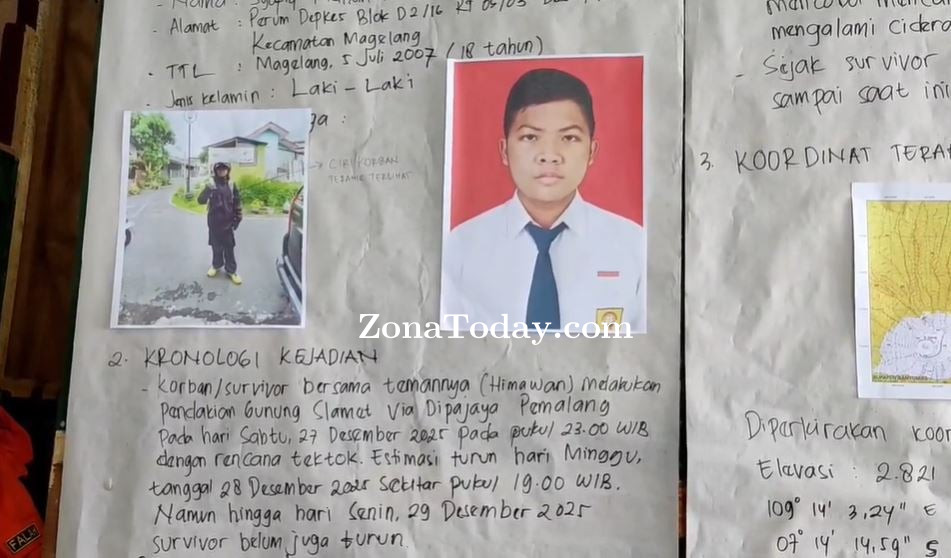 - Nama :
- Alamat : Perum Depkes Blok D2/16 RT 05/03
Kecamatan Magelang
- TTL : Magelang, 5 Juli 2007 (18 tahun)
- Jenis kelamin : Laki - Laki
→ CIRI KORBAN
TERAKHIR TERLIHAT
ZonaToday.com
2. KRONOLOGI KEJADIAN
- Korban/survivor bersama temannya (Himawan) melakukan
Pendakian Gunung Slamet Via Dipajaya Pemalang
Pada hari Sabtu, 27 Desember 2025 Pada pukul 23.00 WIB
dengan rencana tektok. Estimasi turun hari Minggu,
tanggal 28 Desember 2025 Sekitar pukul 19.00 WIB.
Namun hingga hari Senin, 29 Desember 2025
survivor belum juga turun.
mengalami cidera
- Sejak survivor
sampai saat ini
3. KOORDINAT
Diperkirakan
Elevasi : 2.821
109° 14' 3,24" E
07° 14' 14,59" S
FALL